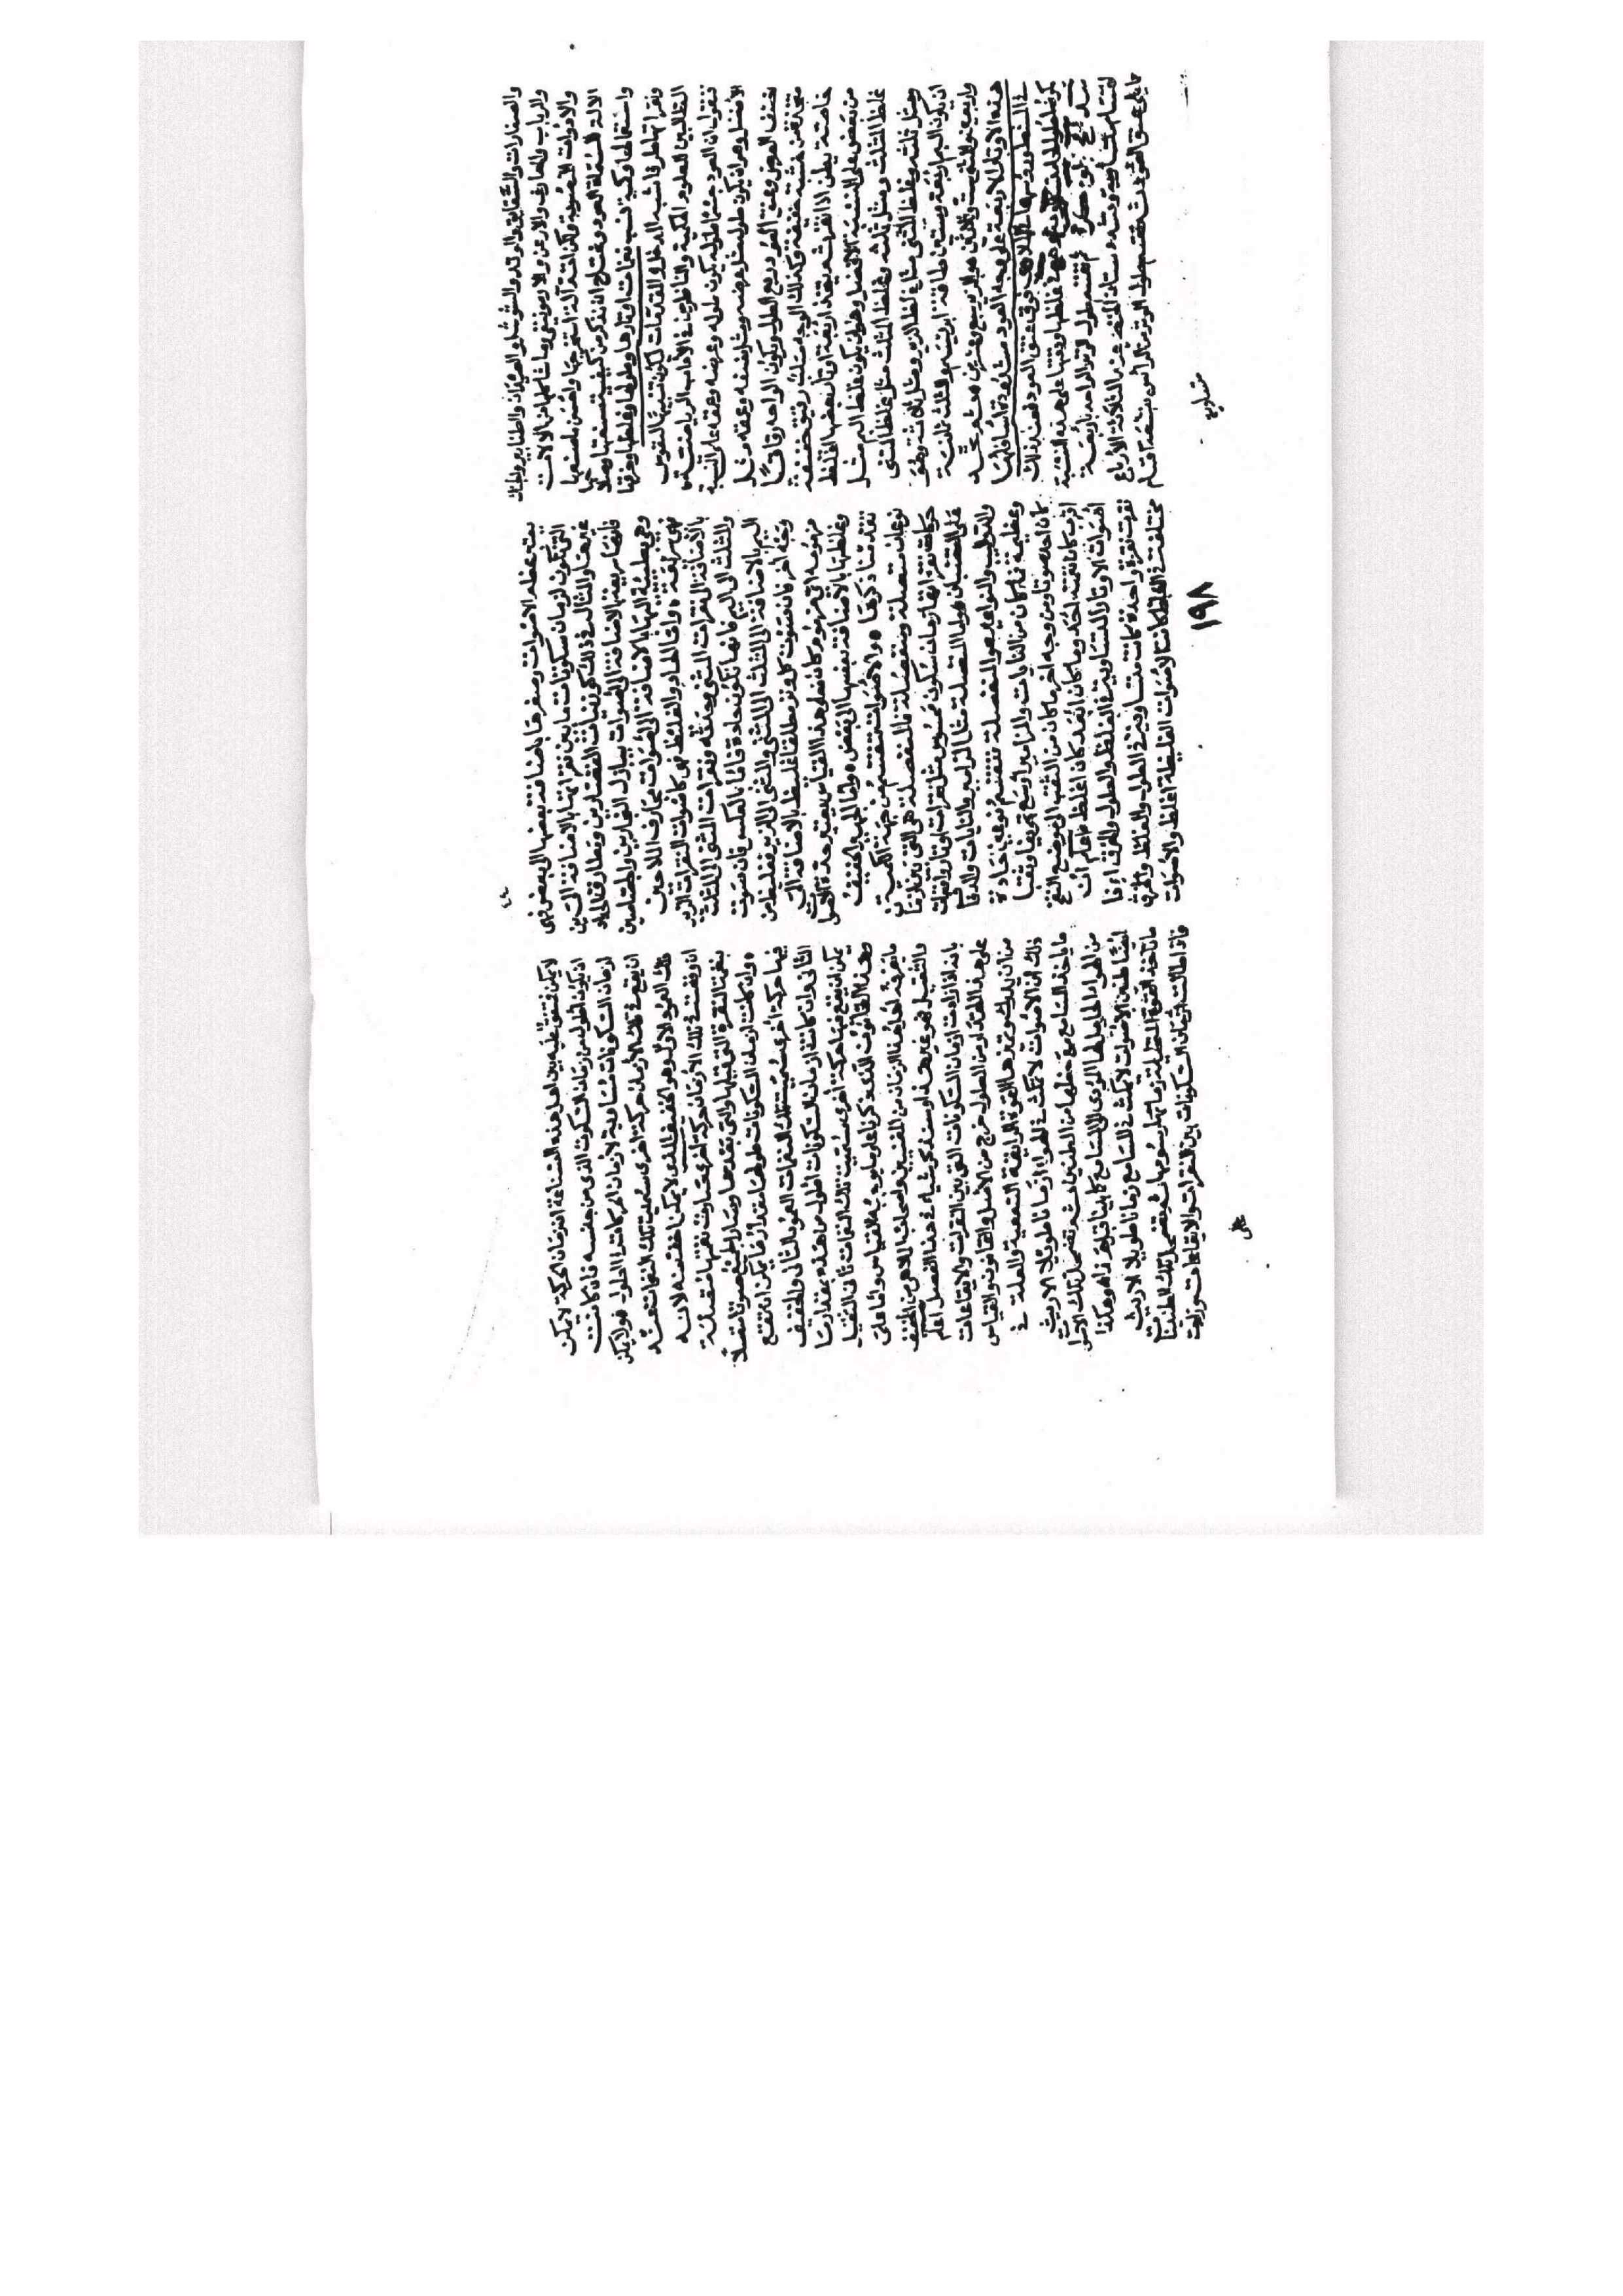 والصنارات والشقايق والرود والشوشل والعيدان والطنابير والجنك
والرباب والمعازف والارغن والارمونيقى وما شاكلها من الالات
والادوات المصوتة ولكن اتم آلة استخرجها واحسن ما صنعها
الالة المسماة العود ونحتاج ان نذكر من كيفية صنعتها واصلاحها
واستعمالها وكمية نسب نغمات اوتارها وطولها وغلظها ودقتها
ونقراتها طرفا شبه المدخل والمقدمات ليكون تنبيها لنفوس
الطالبين للعلوم الحكمية والناظرين في الآداب الرياضية
فنقول ان العود
الافضل وهو ان يكون طوله مثل عرضه ومثل نصفه وعمقه مثل
نصف العرض وعنق العود ربع الطول وتكون الواحه رقاقا
متخذة من خشب خفيف وكذلك الوجه
خاصة يطن اذا نقر ثم يتخذ اربعة اوتار بعضها اغلظ
من بعض على النسبة الافضل وهو ان يكون غلظ البم مثل
غلظ المثلث ومثل ثلثه وغلظ المثلث مثل غلظ المثنى
ومثل ثلثه وغلظ المثنى مثل غلظ الزير ومثل ثلثه وهو
ان يكون البم اربعة وستين طاقة ابريسم والمثلث ثمانية
واربعين والمثنى ستة وثلاثين والزير سبعة وعشرين ثم تمد
هذه الاوتار الاربعة على وجه العود مشدودة اسافلها
في المشط ورؤسها في الملاوي فوق عنق العود فعند ذلك
يكون طولها
ثم يقسم طول الوتر الواحد اربعة
اقسام متساوية ويشد دستان الخنصر عند الثلاثة الارباع
مما يلي عنق العود ثم يقسم طول الوتر من الرأس بتسعة اقسام
متساوية
بين عظم الاصوات وصغرها باضافة بعضها الى بعض
التي تكون ازمان سكونات ما بين نقراتها بالاضافة الى
غيرها والمثال في ذلك كوذينات القصارين ومطارق الحدادين
فانها سريعة بالاضافة الى اصوات بيادر الرزازين والجصاصين
وهي بطيئة بالاضافة الى اصوات مجاذف الملاحين
فهي سريعة واما الحاد والغليظ فهي كاصوات نقرات الزير
بالاضافة الى نقرات المثنى وحدته ونقرات المثنى الى المثلث
والمثلث الى البم فانها تكون حادة فاما بالعكس فان صوت
البم بالاضافة الى المثلث والمثلث الى المثنى والمثنى الى الزير فغليظ من
وجه آخر فان صوت كل وتر مطلقا غليظ بالاضافة الى
مزمومه اي مزموم كان فعلى هذا القياس يعتبر حدة الاصوات
وغلظها بالاضافة بعضها الى بعض واما الجهير والخفيف
فقد مثلنا ذكرها والاصوات تنقسم من جهة الكمية
نوعين متصلة ومنفصلة فالمنفصلة هي التي بين ازمان
حركات نقراتها زمان سكون محسوس مثل نقرات الاوتار وايقاعات
على القضبان واما المتصلة مثل المزامير والنايات والدفاف
والدواليب والنواعير والمتصلة تنقسم نوعين حادة
وغليظة فما كان من النايات والمزامير اوسع تجويفا وثقبا
كان احد صوتا ومن وجه آخر ما كان من الثقب الى موضع النفخ
اقرب كان نغمته احد وما كان ابعد كان اغلظ اعلم ان
اصوات الاوتار المتساوية في الغلظ والطول والخرق اذا
نقرت نقرة واحدة كانت متساوية في الطول والغلظ والخرق
مختلفة في الغلظ كانت الاصوات الغليظة اغلظ والاصوات
١٩٨
لا يكن متفق عليه بين اهل هذه الصناعة ان زمان الحركة لا يمكن
ان يكون اطول من زمان السكون الذي من جنسه فان كانت
ازمان السكونات مساوية لازمان الحركات في الطول ولا يمكن
ان يقع في تلك الازمان حركة اخرى سميت تلك النغمات عند
ذلك العمود الاول وهو الخفيف الذي لا يمكن اخف منه لانه
ان وقعت في تلك الازمان حركة اخرى صارت نغمتها متصلة
بنغمة النقرة التي قبلها والتي بعدها وصار الجميع صوتا متصلا
وان كانت ازمان السكونات طولها مقدار ما يمكن ان تقع
فيها حركة اخرى سميت تلك النغمات العمود الثاني والخفيف
الثاني وان كانت ازمان السكونات اطول من هذه بمقدار ما
يمكن ان يقع فيها حركة اخرى سميت تلك النغمات ثاني الثقيل
وهذا القانون الذي ذكرنا على ما يوجبه القياس
ما يعرفه اهل هذا الزمان من المغنيين واصحاب الملاهي من الخفيف
والثقيل فهو غير هذا وسنذكر شيئا في هذا الفصل اعلم
بانه اذا زادت ازمان السكونات التي بين النقرات والايقاعات
على هذا المقدار من الطول خرج من الاصل والقانون والقياس
من ان يدرك ويميزها القوة الذائقة السمعية والعلة في
ذلك ان الاصوات لا تمكث في الهواء زمانا طويلا الا ريث
ما ياخذ السامع حظها من الطنين ثم تضمحل تلك الاصوات
من الهواء الحامل لها المؤدي الى المسامع كما بينا قبل هذا وهكذا
ايضا طنين الاصوات لا يمكث في المسامع زمانا طويلا الا ريث
ما تاخذ القوة المتخيلة رسومها ثم تضمحل تلك الطنينات
فاذا طالت ازمان السكونات بين النقرات والايقاعات وزادت
على